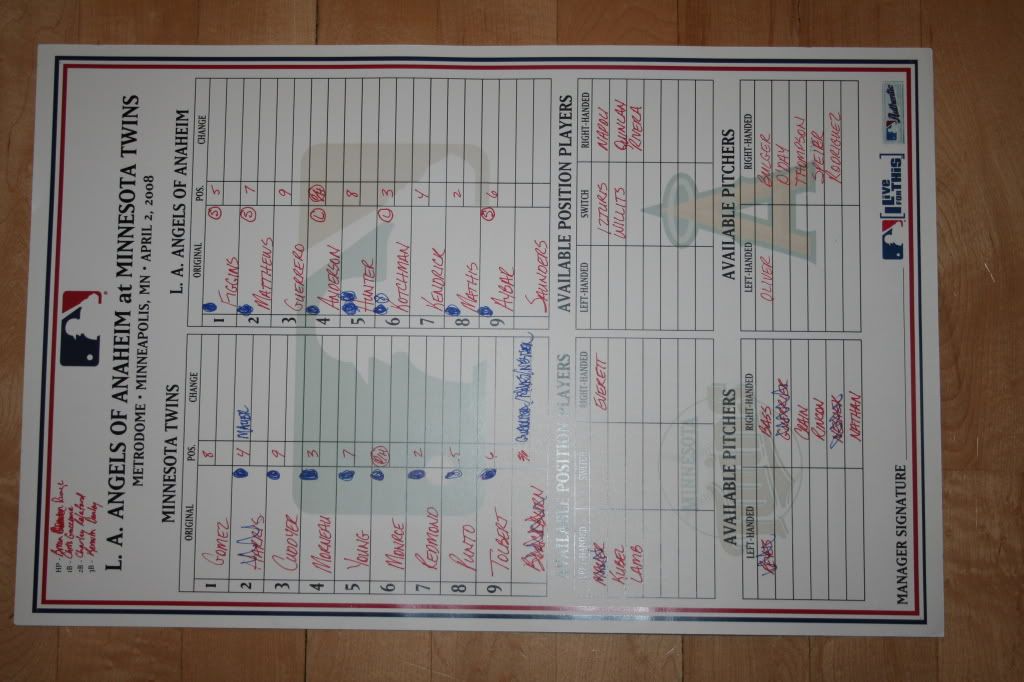 HP-
1B-
2B-
3B-
L. A. ANGELS OF ANAHEIM at MINNESOTA TWINS
METRODOME • MINNEAPOLIS, MN • APRIL 2, 2008
MINNESOTA TWINS
ORIGINAL POS. CHANGE
1 GOMEZ 8
2 4 MAUER
3 CUDDYER 9
4 MORNEAU 3
5 YOUNG 7
6 MONROE
7 REDMOND 2
8 PUNTO 5
9 TOLBERT 6
L. A. ANGELS OF ANAHEIM
ORIGINAL POS. CHANGE
1 FIGGINS S 5
2 MATTHEWS S 7
3 GUERRERO 9
4 ANDERSON L
5 HUNTER 8
6 KOTCHMAN L 3
7 KENDRICK 4
8 MATHIS 2
9 AYBAR S 6
SAUNDERS
AVAILABLE POSITION PLAYERS
LEFT-HANDED SWITCH RIGHT-HANDED
MAUER EVERETT
KUBEL
LAMB
MINNESOTA
AVAILABLE POSITION PLAYERS
LEFT-HANDED SWITCH RIGHT-HANDED
IZTURIS NAPOLI
WILLITS QUINLAN
RIVERA
AVAILABLE PITCHERS
LEFT-HANDED RIGHT-HANDED
REYES BASS
GUERRIER
CRAIN
RINCON
NESHEK
NATHAN
AVAILABLE PITCHERS
LEFT-HANDED RIGHT-HANDED
OLIVER BULGER
O'DAY
THOMPSON
SPEIER
RODRIGUEZ
MANAGER SIGNATURE
I Live FOR THIS
Authentic